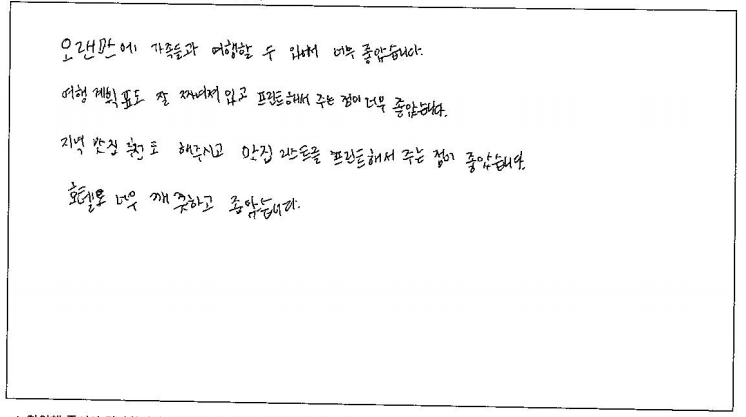 오랜만에 가족들과 여행할 수 있어서 너무 좋았습니다.
여행 계획표도 잘 짜여져 있고 프린트해서 주는 점이 너무 좋았습니다.
지역 맛집 추천도 해주시고 맛집 리스트를 프린트해서 주는 점이 좋았습니다.
호텔도 너무 깨끗하고 좋았습니다.